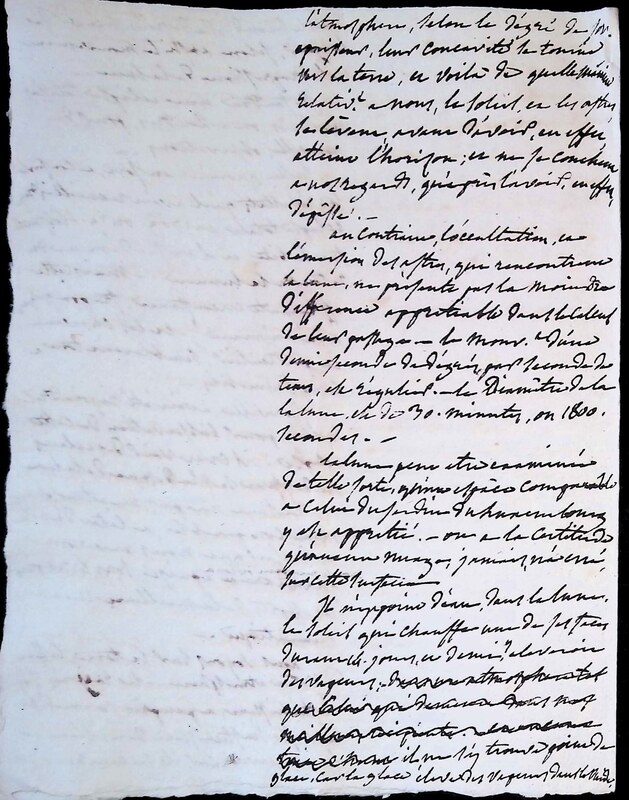 l'atmosphere, selon le dégré de son
épaisseur, leur concavité se tourne
vers la terre, et voilà de quelle manière
relativt. a nous, le soleil, et les astres
se lèvent, avant d'avoir, en effet
atteint l'horison; et ne se couchent
a nos regards, qu'après l'avoir, en effet,
dépassé. —
au contraire, l'occultation, et
l'émersion des astres, qui rencontrent
la lune, ne présente pas la moindre
différence appretiable dans le calcul
de leur passage — le mouvt. d'une
demie seconde de dégrés, par seconde de
tems, est régulier. — le Diamètre de la
la lune est de 30. minutes, ou 1800.
secondes. —
la lune peut etre examinée
de telle sorte, qu'une espace comparable
a celui du jardin du Luxembourg
y est appretié. — on a la certitude
qu'aucun nuage, jamais, n'a erré,
sur cette surface —
Il n'est point d'eau, dans la lune.
le soleil qui chauffe une de ses faces
durant jours, et demi, eleveroit
des vapeurs,
que
il ne s'y trouve point de
glace, car la glace élève des vapeurs dans le vuide,